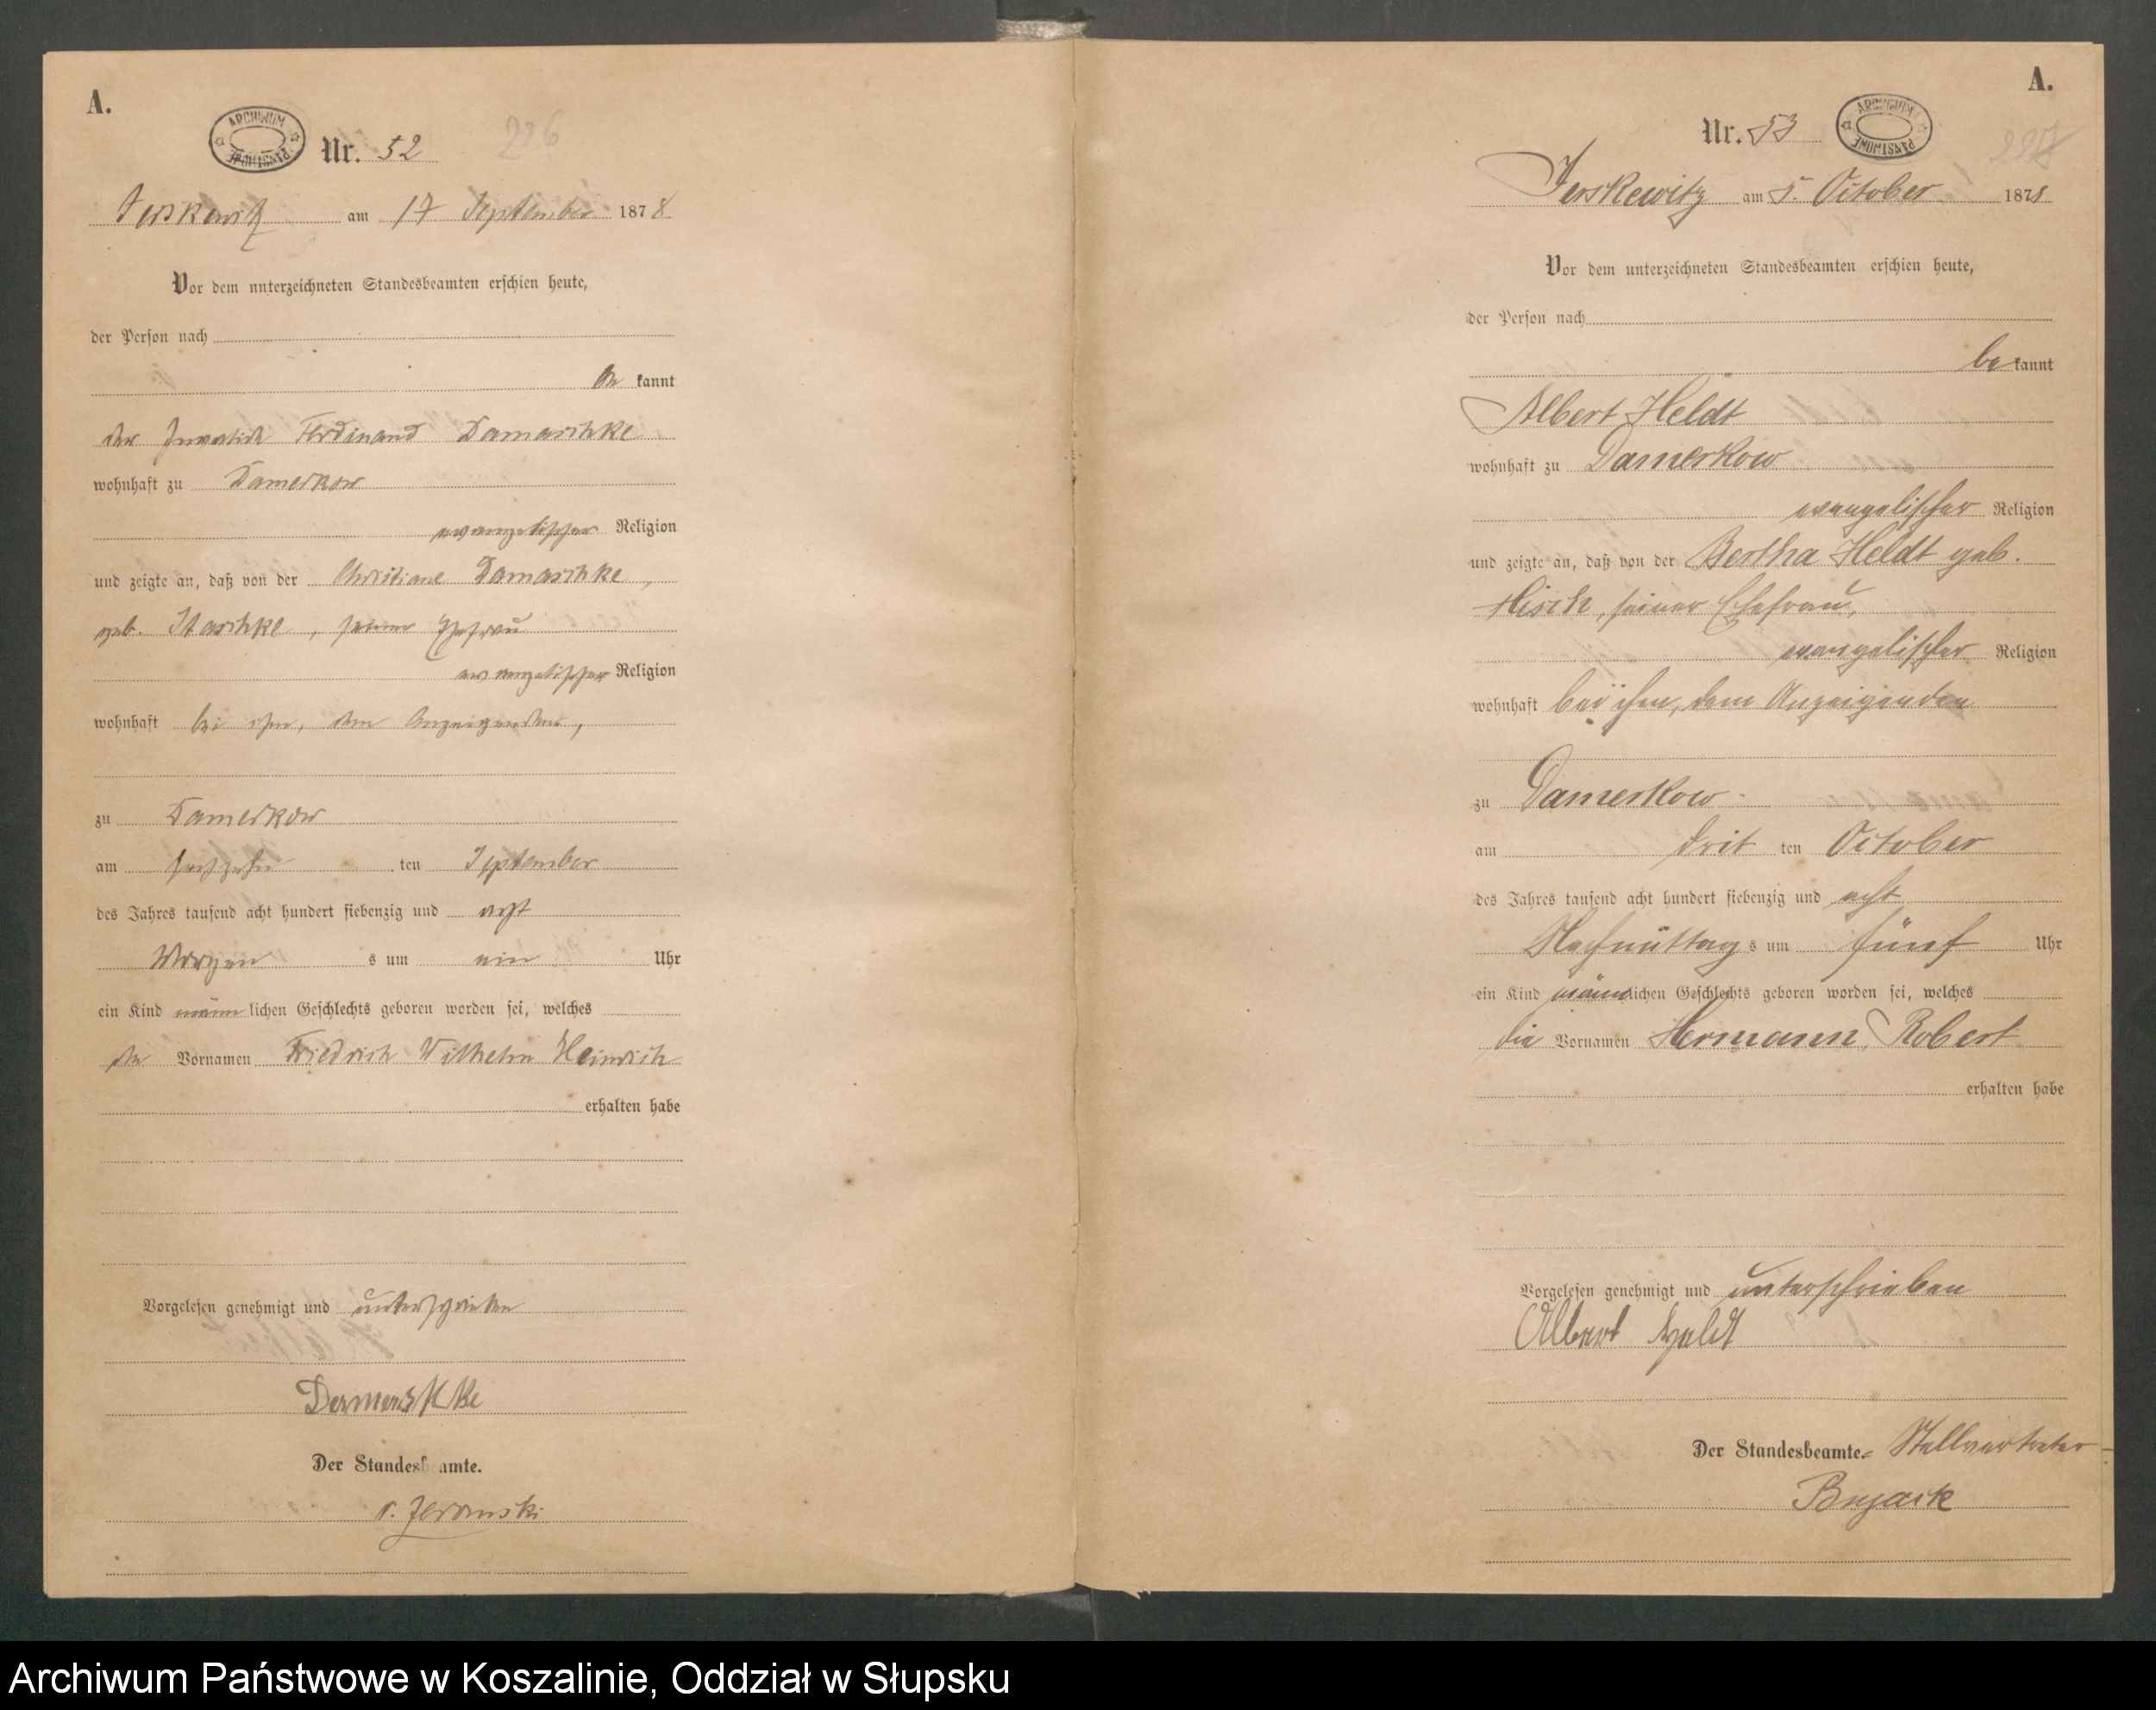 A.
ARCHIWUM PAŃSTWOWE
Nr. 52
226
Jerskewitz am 17 September 1878
Vor dem unterzeichneten Standesbeamten erschien heute,
der Person nach
be kannt
der Invalide Ferdinand Damaschke
wohnhaft zu Damerkow
evangelischer Religion
und zeigte an, daß von der Christiane Damaschke,
geb. Staschke, seiner Ehefrau
evangelischer Religion
wohnhaft bei ihm, dem Anzeigenden,
zu Damerkow
am sechzehn ten September
des Jahres tausend acht hundert siebenzig und acht
Morgen s um ein Uhr
ein Kind männ lichen Geschlechts geboren worden sei, welches
die Vornamen Friedrich Wilhelm Heinrich
erhalten habe
Vorgelesen genehmigt und unterschrieben
Der Standesbeamte.
A.
Nr. 53
ARCHIWUM PAŃSTWOWE
Jerskewitz am 5. October 1878
Vor dem unterzeichneten Standesbeamten erschien heute,
der Person nach
be kannt
Albert Heldt
wohnhaft zu Damerkow
evangelischer Religion
und zeigte an, daß von der Bertha Heldt geb.
seiner Ehefrau,
evangelischer Religion
wohnhaft bei ihm, dem Anzeigenden
zu Damerkow
am drit ten October
des Jahres tausend acht hundert siebenzig und acht
Nachmittag s um fünf Uhr
ein Kind männlichen Geschlechts geboren worden sei, welches
die Vornamen Hermann Robert
erhalten habe
Vorgelesen genehmigt und unterschrieben
Albert Heldt
Der Standesbeamte. Stellvertreter
Archiwum Państwowe w Koszalinie, Oddział w Słupsku